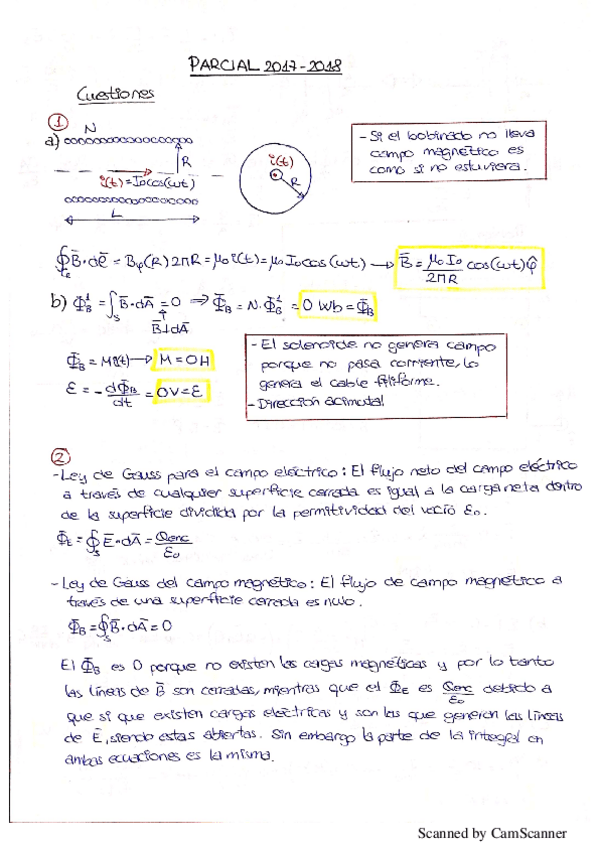 PARCIAL 2017-2018
Cuestiones
1
N
a)
R
i(t)=I₀cos(ωt)
L
i(t)
R
- Si el bobinado no lleva
campo magnético es
como si no estuviera.
∮B̄·dl̄ = Bφ(R)2πR = μ₀i(t) = μ₀I₀cos(ωt) → B̄ = μ₀I₀/2πR cos(ωt)φ̂
b) Φ̄_B¹ = ∫_S B̄·dĀ = 0 ⇒ Φ̄_B = N·Φ̄_B¹ = 0 Wb = Φ̄_B
B̄⊥dĀ
Φ̄_B = Mi(t) → M = 0H
ε = - dΦ̄_B/dt = 0V = ε
- El solenoide no genera campo
porque no pasa corriente, lo
genera el cable filiforme.
- Dirección acimutal
2
- Ley de Gauss para el campo eléctrico: El flujo neto del campo eléctrico
a través de cualquier superficie cerrada es igual a la carga neta dentro
de la superficie dividida por la permitividad del vacío ε₀.
Φ̄_E = ∮_S Ē·dĀ = Qenc/ε₀
- Ley de Gauss del campo magnético: El flujo de campo magnético a
través de una superficie cerrada es nulo.
Φ̄_B = ∮_S B̄·dĀ = 0
El Φ̄_B es 0 porque no existen las cargas magnéticas y por lo tanto
las líneas de B̄ son cerradas, mientras que el Φ̄_E es Qenc/ε₀ debido a
que si que existen cargas eléctricas y son las que generan las líneas
de Ē, siendo estas abiertas. Sin embargo la parte de la integral en
ambas ecuaciones es la misma.
Scanned by CamScanner